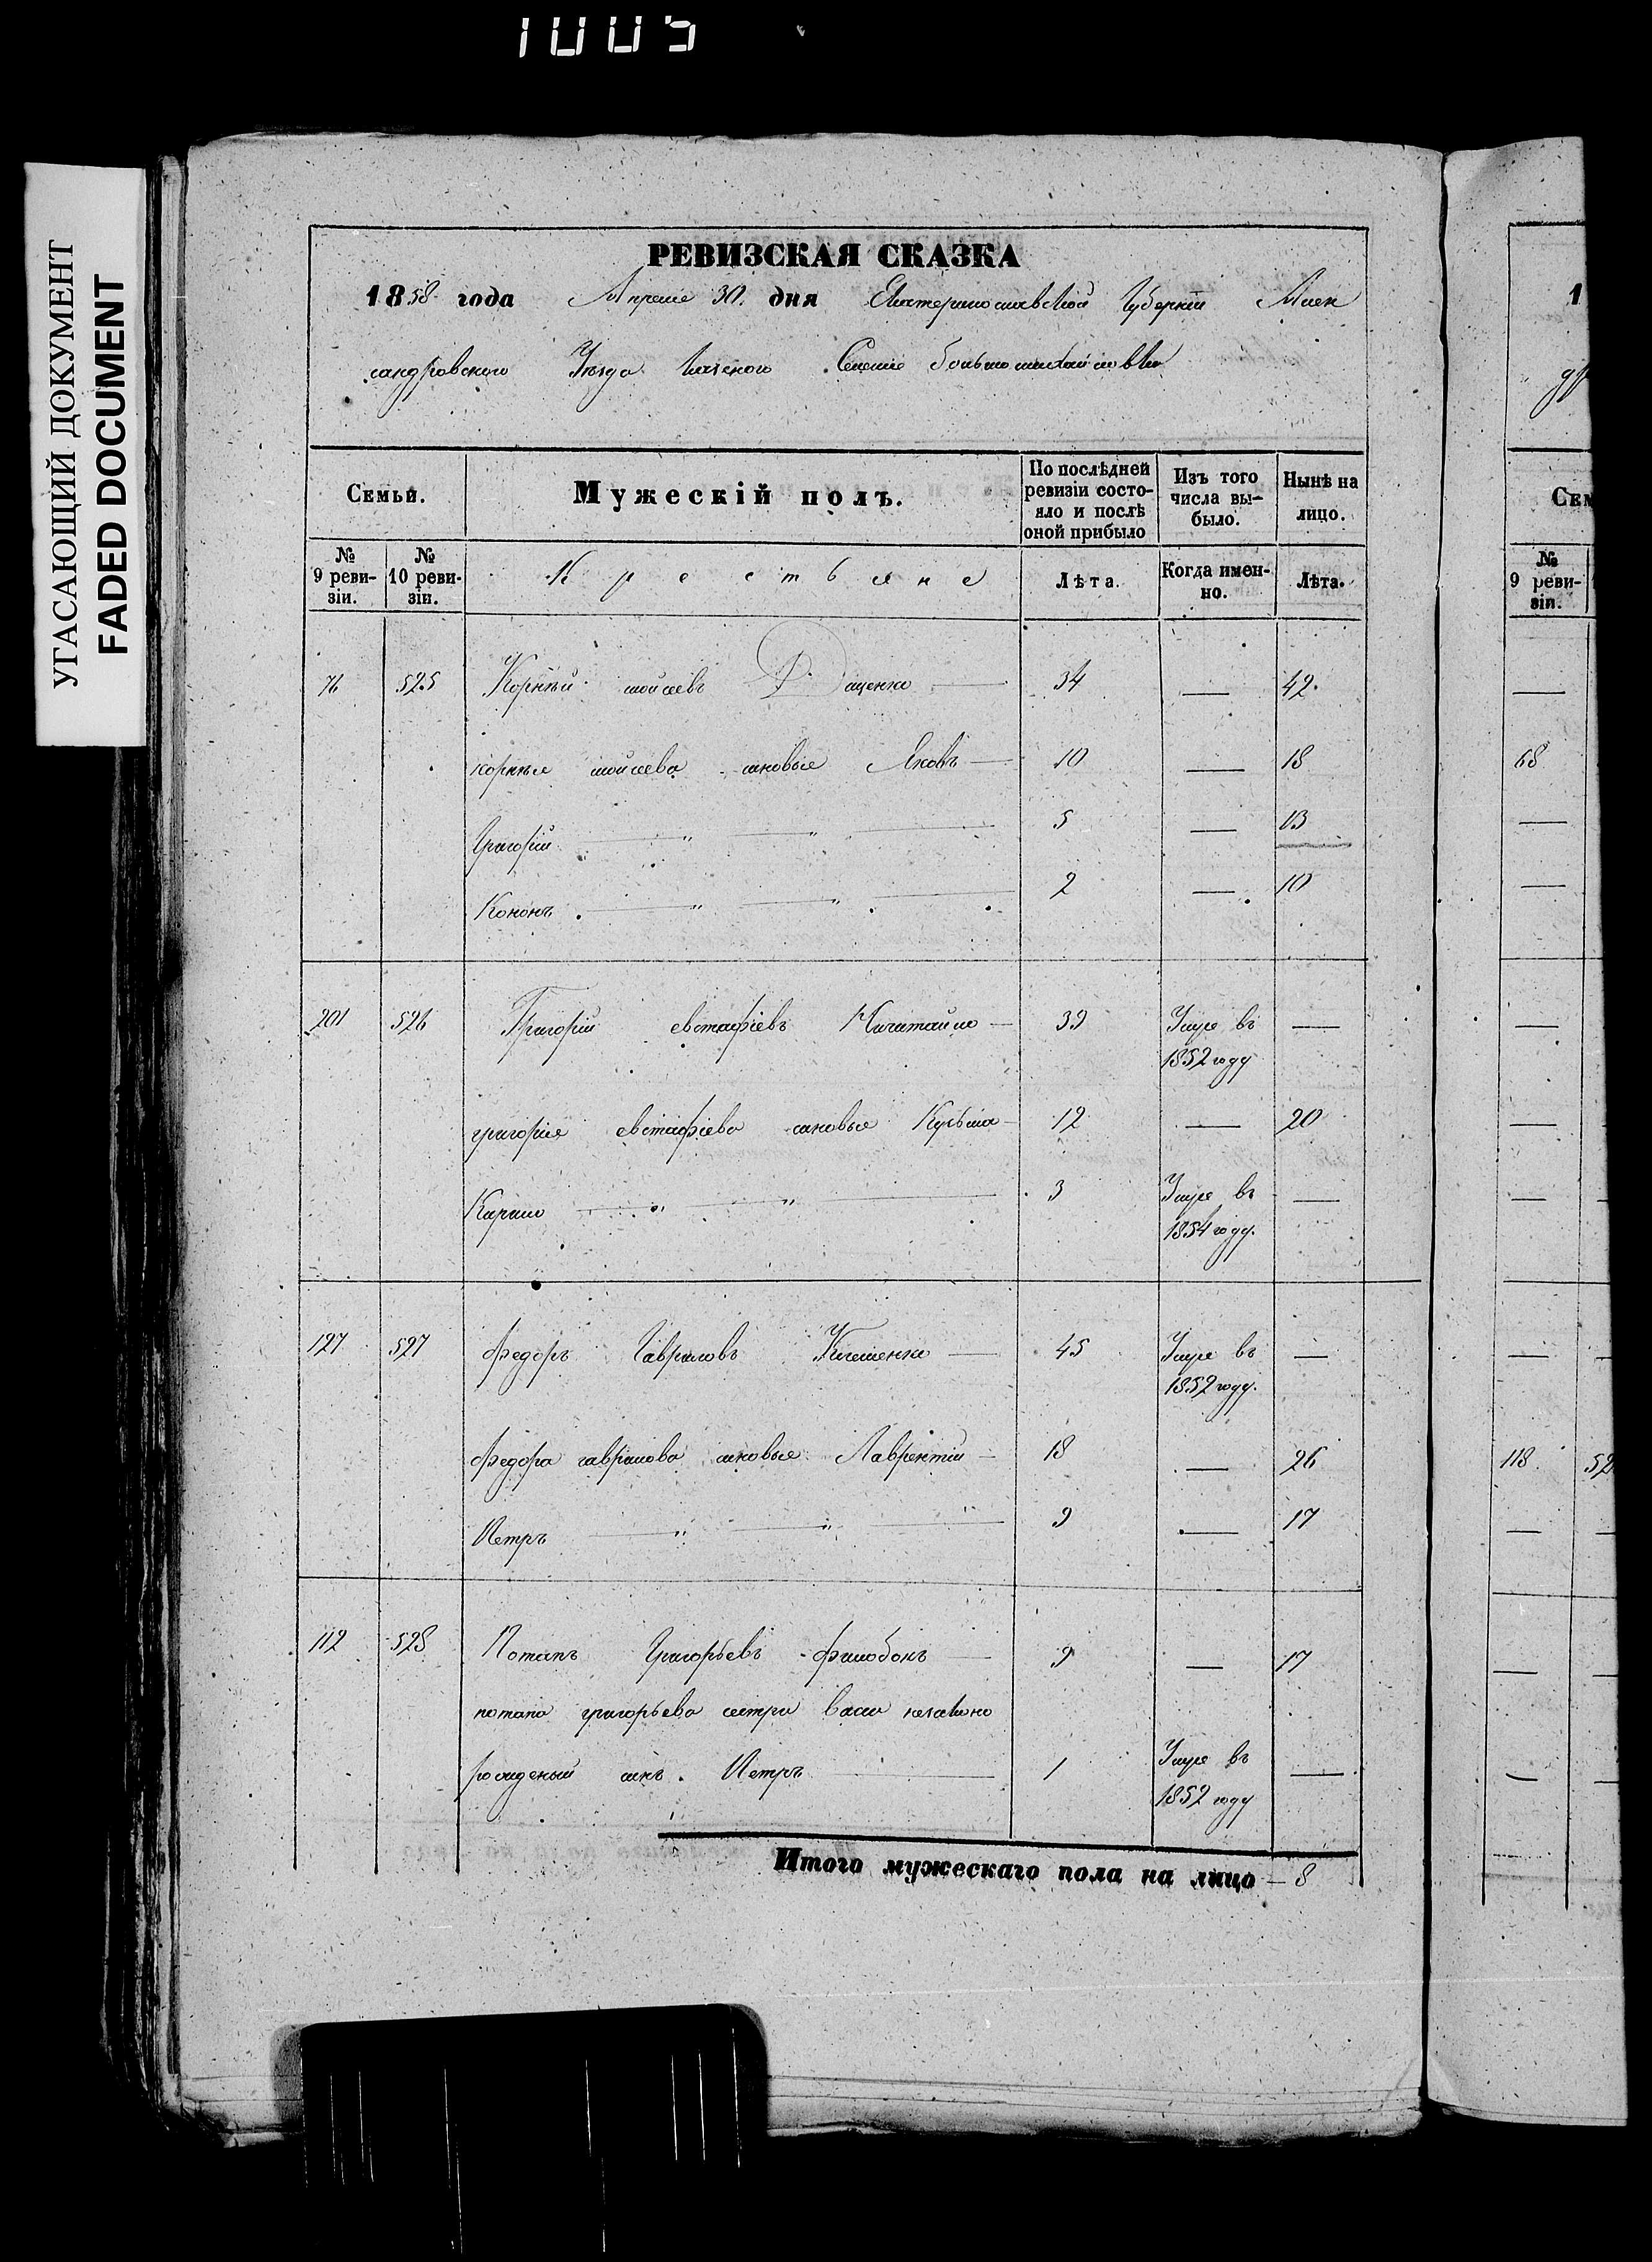 1005
УГАСАЮЩИЙ ДОКУМЕНТ
FADED DOCUMENT
РЕВИЗСКАЯ СКАЗКА
1858 года Апреля 30 дня Екатеринославской Губернiи Алек
сандровского Уѣзда Селенiя большомихайловки
Семьи.
Мужескiй полъ.
По послѣдней ревизiи состояло и послѣ оной прибыло
Изъ того числа выбыло.
Нынѣ на лицо.
№ 9 ревизiи.
№ 10 ревизiи.
Крестьяне
Лѣта.
Когда именно.
Лѣта.
76 525 Корнѣй моисеевъ Даценко 34 — 42.
корнѣя моисеева сыновья Яковъ 10 — 18
Григорiй " " 5 — 13
Кононъ " " 2 — 10
201 526 Григорiй евстафiевъ 39 Умре въ —
1852 году
григорiя евстафiева сыновья Кузьма 12 — 20
" " 3 Умре въ —
1854 году.
127 527 Федоръ Гавриловъ 45 Умре въ —
1852 году.
федора гаврилова сыновья Лаврентiй 18 — 26
Петръ " " 9 — 17
112 528 Потапъ Григорьевъ 9 — 17
потапа григорьева сестры незаконо
рожденый сынъ Петръ 1 Умре въ —
1852 году
Итого мужескаго пола на лицо — 8
1
Сем
№ 9 ревизiи.
68
118 52